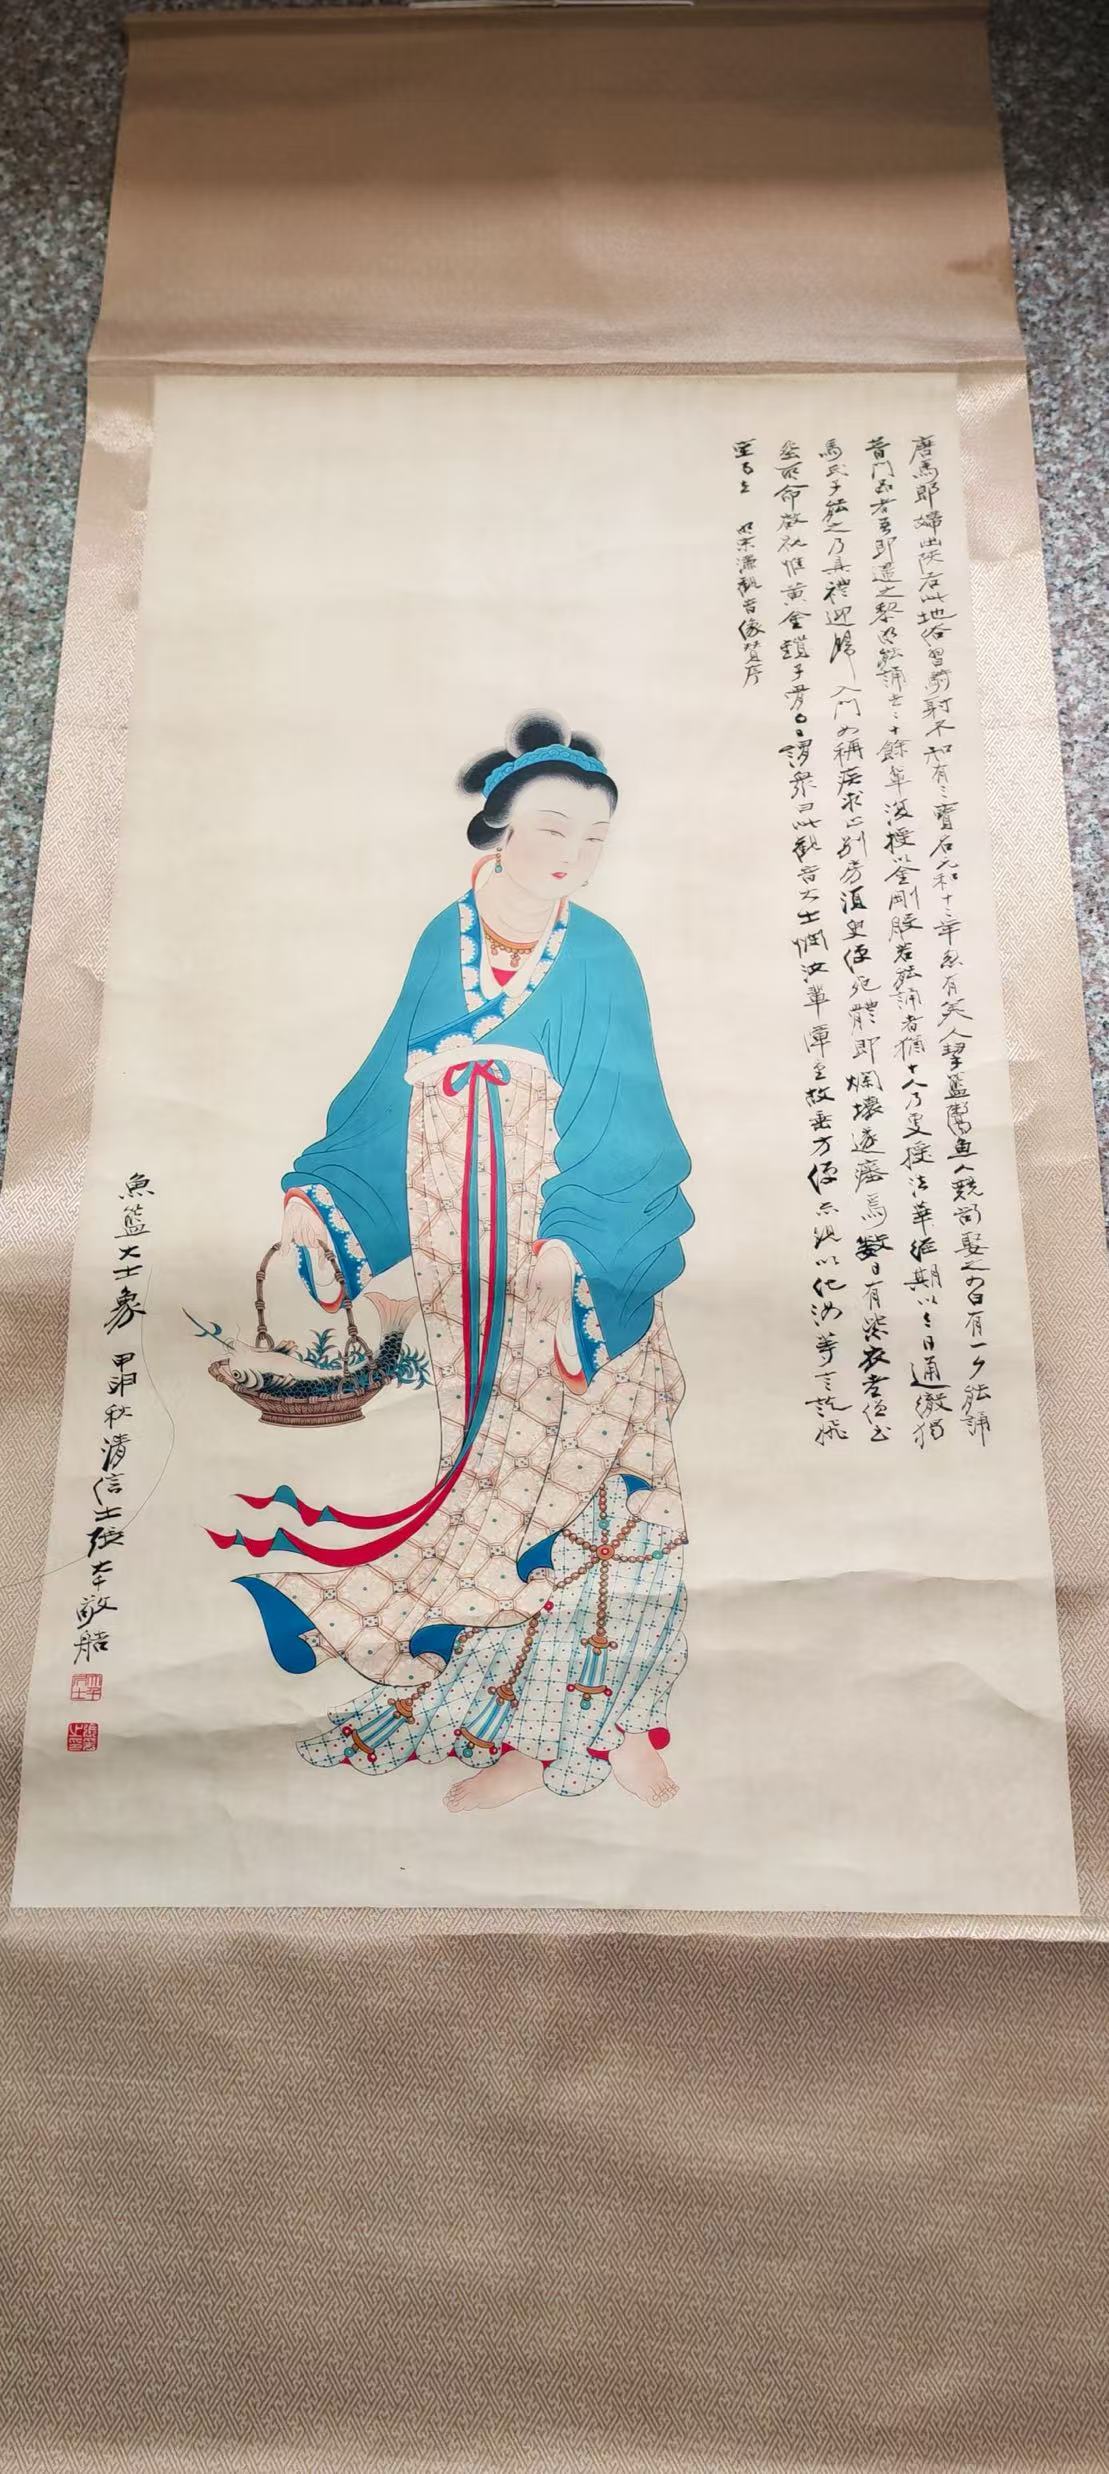 唐馬郎婦出陝右此地俗習騎射不知有三寶名元和十二年忽有美人挈籃鬻魚人競欲娶之女曰有一夕能誦
普門品者吾即適之黎明能誦者二十餘輩復授以金剛般若能誦者猶十人乃更授法華經期以三日通徹獨
馬氏子能之乃具禮迎歸入門女稱疾求止別房須臾便死體即爛壞遂瘞焉數日有紫衣老僧至
命啟視惟黃金鎖子骨曰謂眾曰此觀音大士憫汝輩障重故垂方便示現以化汝等言訖飛
空而去 明宋濂觀音像贊序
魚籃大士象 甲申秋清信士張大千敬造